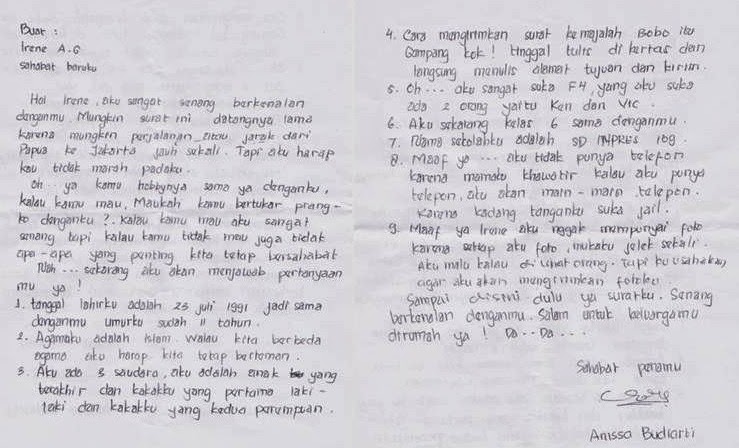 Buat :
Irene A.G
Sahabat baruku
Hai Irene, aku sangat senang berkenalan
denganmu. Mungkin surat ini datangnya lama
karena mungkin perjalanan atau jarak dari
Papua ke Jakarta jauh sekali. Tapi aku harap
kau tidak marah padaku.
Oh.. ya kamu hobbynya sama ya denganku,
kalau kamu mau, Maukah kamu bertukar prang-
ko denganku ?. Kalau kamu mau aku sangat
senang tapi kalau kamu tidak mau juga tidak
apa-apa yang penting kita tetap bersahabat
Nah ... sekarang aku akan menjawab pertanyaan
mu ya !
1. tanggal lahirku adalah 23 juli 1991 jadi sama
denganmu umurku sudah 11 tahun.
2. Agamaku adalah Islam. Walau kita berbeda
agama aku harap kita tetap berteman.
3. Aku ada 3 saudara, aku adalah anak yang
terakhir dan kakakku yang pertama laki-
laki dan kakakku yang kedua perempuan.
4. Cara mengirimkan surat ke majalah Bobo itu
Gampang kok ! tinggal tulis di kertas dan
langsung menulis alamat tujuan dan kirim.
5. Oh ... aku sangat suka F4, yang aku suka
ada 2 orang yaitu Ken dan Vic.
6. Aku sekarang kelas 6 sama denganmu.
7. Nama sekolahku adalah SD INPRES 109.
8. Maaf ya ... aku tidak punya telepon
karena mamaku khawatir kalau aku punya
telepon, aku akan main-main telepon.
Karena kadang tanganku suka jail.
9. Maaf ya Irene aku nggak mempunyai foto
karena setiap aku foto, mukaku jelek sekali.
Aku malu kalau di lihat orang. Tapi ku usahakan
agar aku akan mengirimkan fotoku.
Sampai disini dulu ya suratku. Senang
berkenalan denganmu. Salam untuk keluargamu
dirumah ya ! Da.. Da ...
Sahabat penamu
Anissa Budiarti